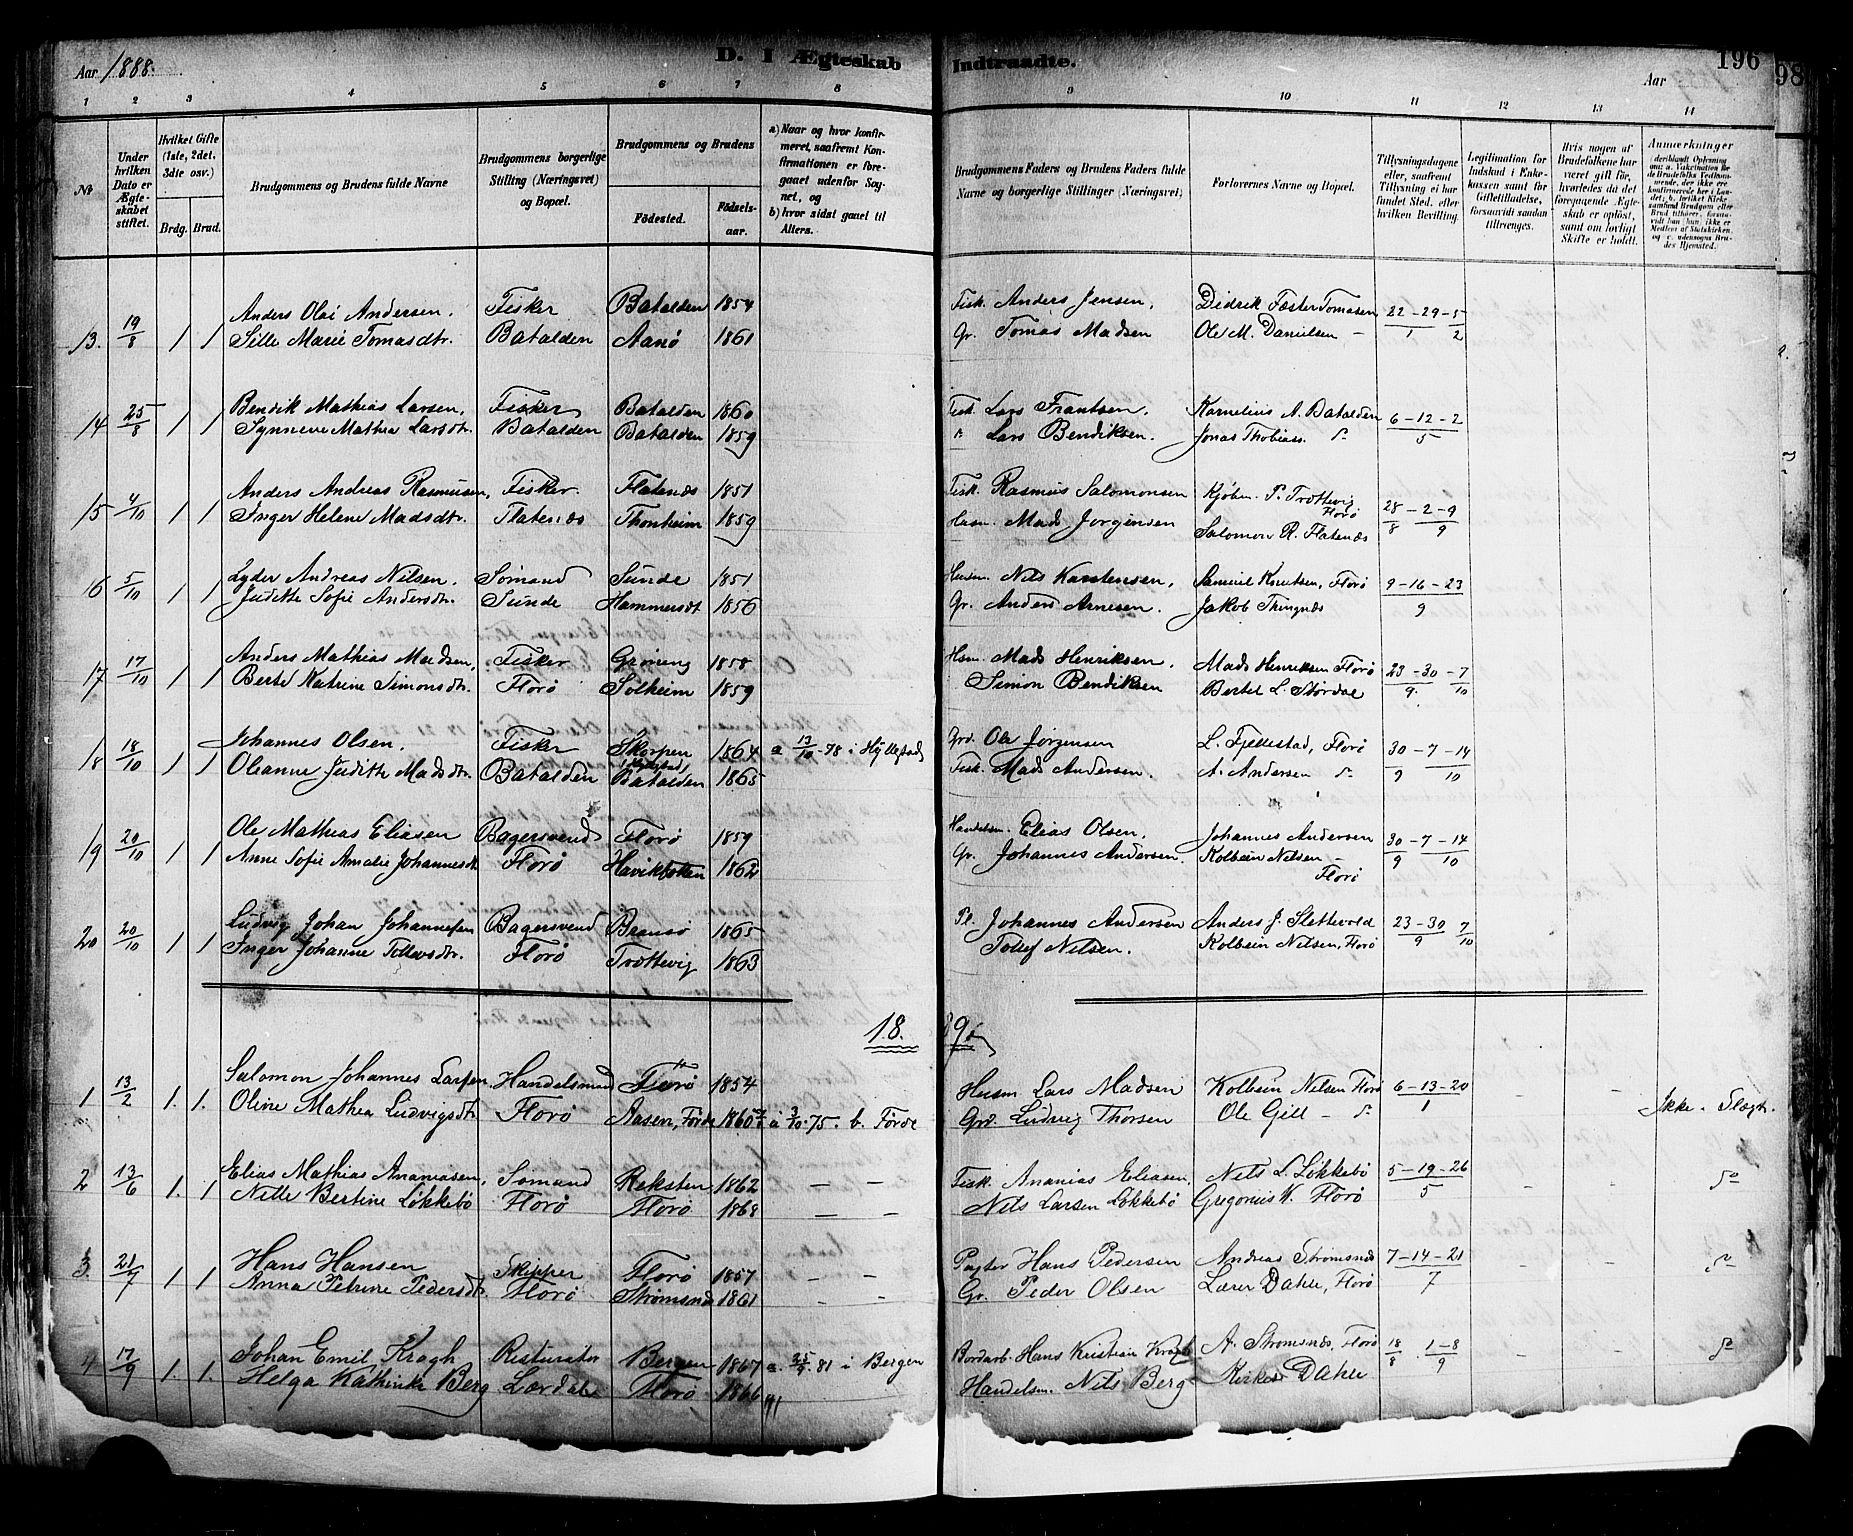 Aar 1888.
D. I Ægteskab Indtraadte.
196
98
Aar
1 2 3 4 5 6 7 8 9 10 11 12 13 14
No
Under hvilken Dato er Ægteskabet stiftet.
Hvilket Gifte (1ste, 2det, 3die osv.)
Brdg. Brud.
Brudgommens og Brudens fulde Navne
Brudgommens borgerlige Stilling (Næringsvei) og Bopæl.
Brudgommens og Brudens
Födested.
Födselsaar.
a) Naar og hvor konfirmeret, saafremt Konfirmationen er foregaaet udenfor Sognet, og
b) hvor sidst gaaet til Alters.
Brudgommens Faders og Brudens Faders fulde Navne og borgerlige Stillinger (Næringsvei).
Forlovernes Navne og Bopæl.
Tillysningsdagene eller, saafremt Tillysning ei har fundet Sted, efter hvilken Bevilling.
Legitimation for Indskud i Enkekassen samt for Giftetilladelse, forsaavidt saadan tiltrænges.
Hvis nogen af Brudefolkene har været gift för, hvorledes da det foregaaende Ægteskab er oplöst, samt om lovligt Skifte er holdt.
Anmærkninger
13. 19/8 1 1 Anders Olai Andersen. Fisker Batalden 1854 Fisk. Anders Jensen, Didrik Fæster Tomasen 22-29-5
Sille Marie Tomasdtr. Batalden Aanø 1861 Gr. Tomas Madsen Ole M. Danielsen - 1 2
14 25/8 1 1 Bendik Mathias Larsen, Fisker Batalden 1860 Fisk. Lars Frantsen. Kornelius A. Batalden 6-12-2
Synneve Mathea Larsdtr. Batalden Batalden 1859 Lars Bendiksen. Jonas Thobiass. 5
15 4/10 1 1 Anders Andreas Rasmusen, Fisker. Flatenæs 1851 Fisk. Rasmus Salomonsen Kjøbm. P. Trættevig Florø 28-2-9
Inger Helene Madsdtr. Flatenæs Thonheim 1859 Husm. Mads Jørgensen Salomon R. Flatenæs 8 9
16 5/10 1 1 Lyder Andreas Nilsen. Sømand Sunde 1851 Husm. Nils Karstensen, Samuel Knutsen, Florø 9-16-23
Juditte Sofie Andersdtr. Sunde Hammersdt 1856 Gr. Anders Arnesen. Jakob Thingnæs 9
17 17/10 1 1 Anders Mathias Madsen, Fisker Grøneng 1858 Husm. Mads Henriksen. Mads Henriksen Florø 23-30-7
Berte Katrine Simonsdtr. Florø Solheim 1859 Simon Bendiksen Bertel L. Størdal 9. 10
18 18/10 1 1 Johannes Olsen. Fisker Skorpen i Hyllestad, 1864 a 13/10-78 i Hyllestad Grd. Ole Jørgensen L. Fjellestad, Florø 30-7-14
Olianne Juditte Madsdtr. Batalden Batalden 1865 Fisk. Mads Andersen. A. Andersen 9 10
19 20/10 1 1 Ole Mathias Eliasen Bagersvend Florø 1859 Handelsm. Elias Olsen. Johannes Andersen 30-7-14
Anne Sofie Amalie Johannesdt. Florø Havikbotten 1862 Gr. Johannes Andersen. Kolbein Nilsen - Florø 9 10
20 20/10 1 1 Ludvig Johan Johannessen Bagersvend Bransø 1865 Pl. Johannes Andersen Anders J. Slettevold 23-30 7
Inger Johanne Tollevsdtr. Florø Trættevig 1863 Tollef Nilsen. Kolbein Nilsen, Florø 9 10
1889.
1 13/2 1. 1. Salomon Johannes Larsen Handelsmand Florø 1854 Husm Lars Madsen Kolbein Nilsen Florø 6-13-20
Oline Mathea Ludvigsdtr Florø Aasen, Førde 1860 a 3/10-75. b. Førde Grd. Ludvig Thorsen Ole Gill - 1 Ikke Slægt.
2 13/6 1. 1 Elias Mathias Ananiasen, Sømand Reksten 1862 Fisk. Ananias Eliasen, Nils L. Løkkebø 5-19-26
Nille Bertine Løkkebø Florø Florø 1868 Nils Larsen Løkkebø Gregonius K. Florø 5 do
3. 21/7 1 1 Hans Hansen Skipper Florø 1857 Pagter Hans Pedersen Andreas Strømsnæs 7-14-21
Anna Petrine Pedersdtr. Florø Strømsnæs 1861 Gr. Peder Olsen Lærer Dahle, Florø 7 do
4 17/9 1. 1. Johan Emil Krogh Resturatør Bergen 1867 a. 25/9.81 i Bergen Bordarb. Hans Kristian Krogh A. Strømsnæs, Florø 18/8 1-8
Helga Kathinka Berg Lærdal Florø 1866 Handelsm. Nils Berg Dahle 9 do